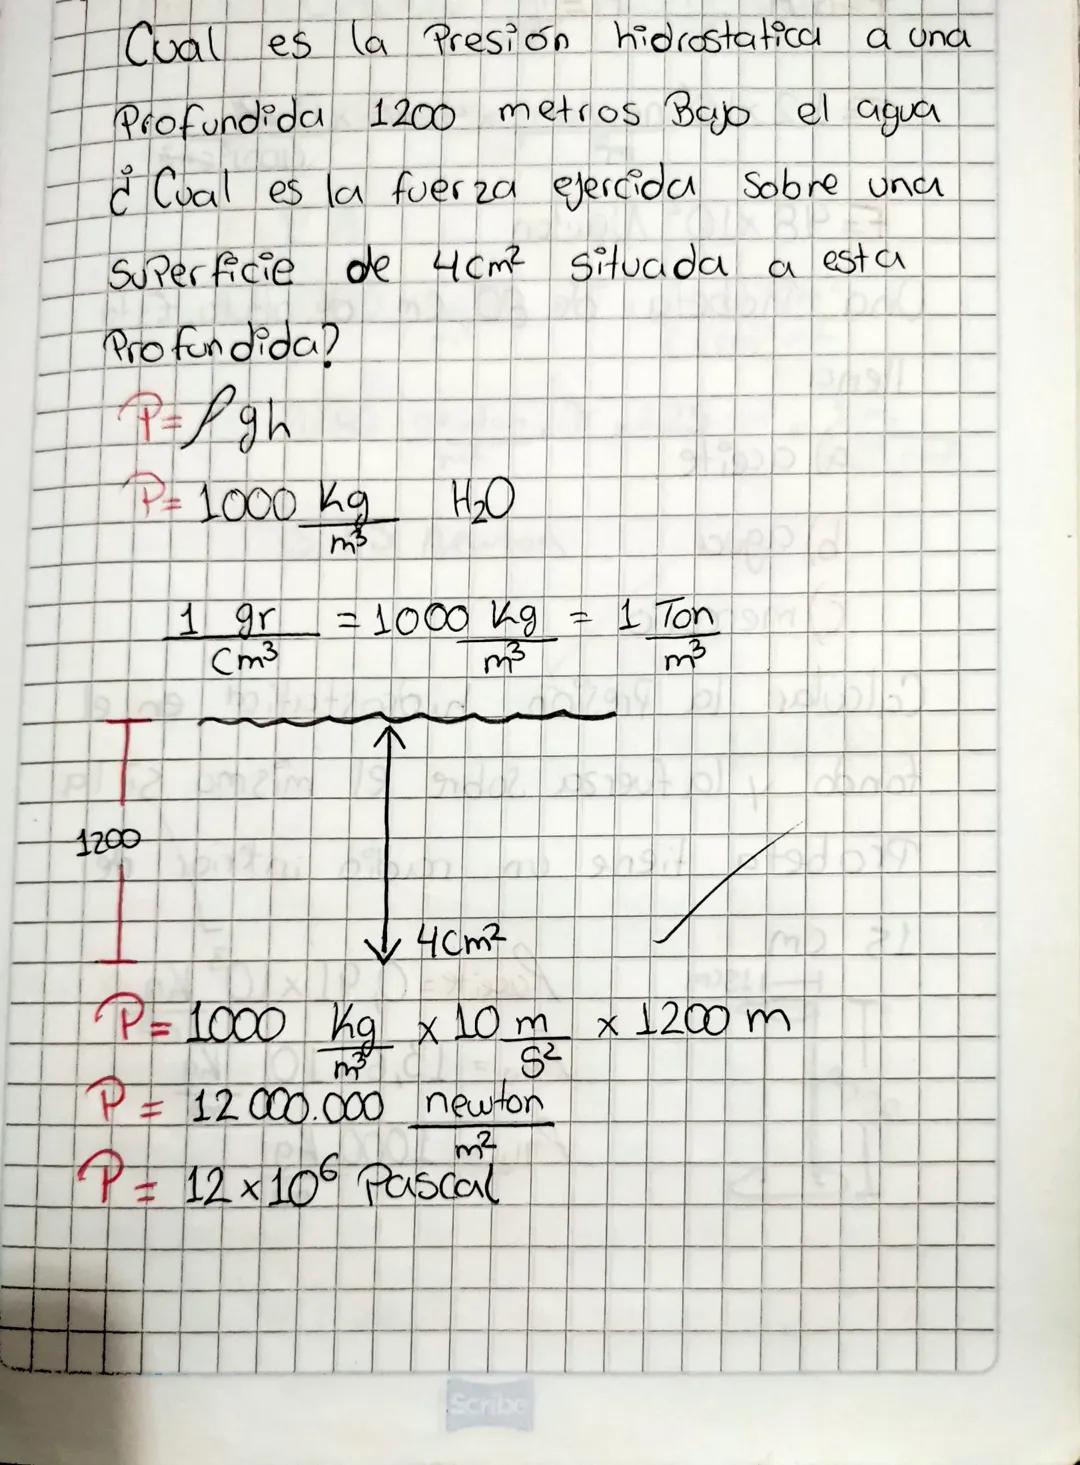 Cual es la Presión hidrostatica a una
Profundida 1200 metros Bajo el agua
¿ Cual es la fuerza ejercida sobre una
Superficie de 4cm² situada a esta
Profundida?
P= ρgh
P= 1000 Kg/m³ H₂O
1 gr/cm³ = 1000 Kg/m³ = 1 Ton/m³
1200
4cm²
P= 1000 Kg/m³ x 10 m/s² x 1200 m
P= 12 000.000 newton/m²
P= 12x10⁶ Pascal
Scribe